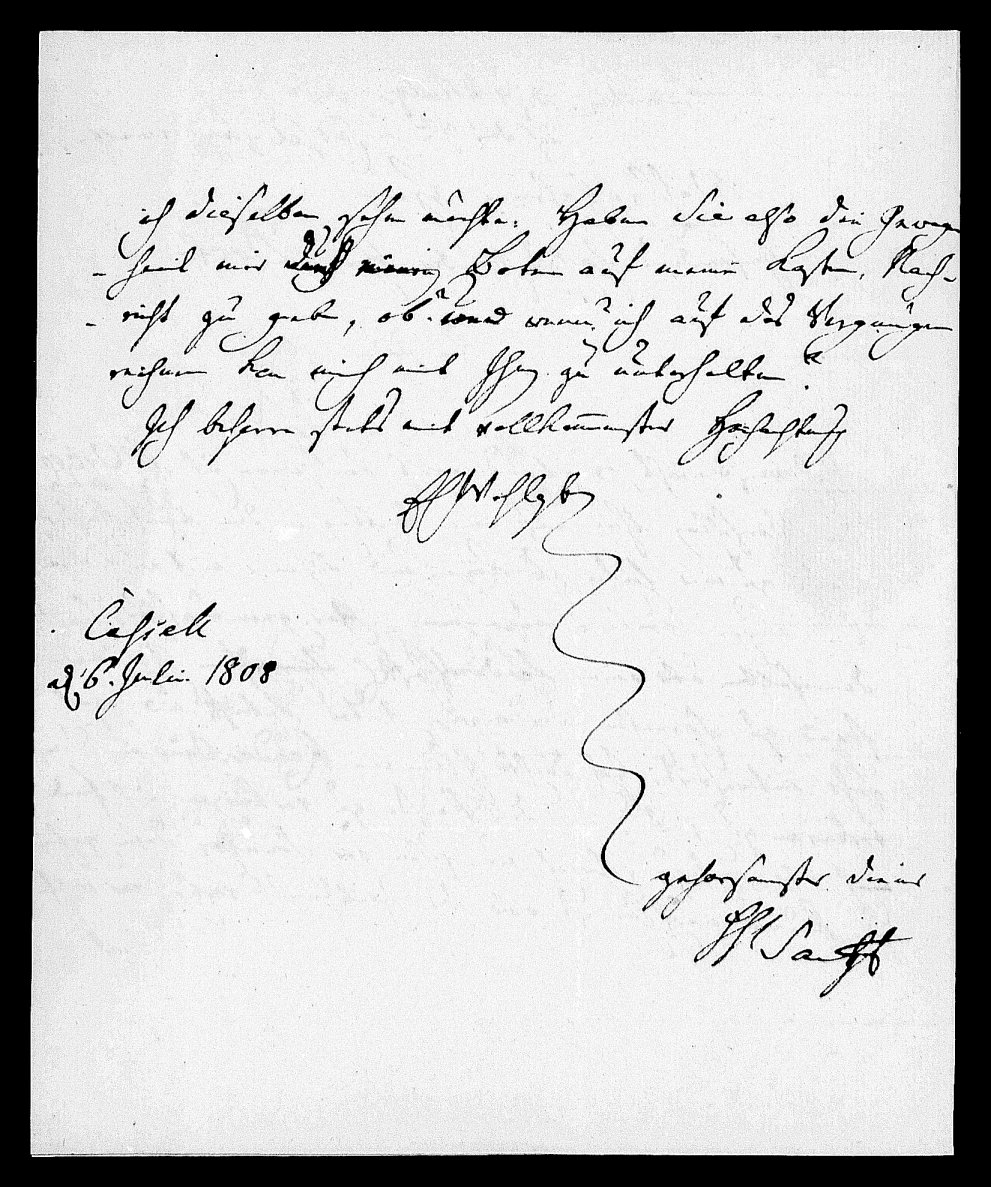 ich dieselben sehn möchte. Haben Sie also die Gewogen
-heit mir durch einen Boten auf meine Kosten, Nach-
-richt zu geben, ob und wenn ich auf das Vergnügen
rechnen kan mich mit Ihnen zu unterhalten?
Ich beharre stets mit vollkommenster Hochachtung
Ew Wohlgeb
Cassell
d. 6. Julii 1808
gehorsamster Diener